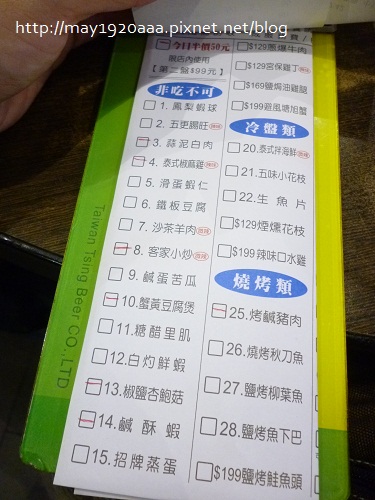 http://may1920aaa.pixnet.net/blog
今日半價50元
限店內使用
【第二盤$99元】
非吃不可
1. 鳳梨蝦球
2. 五更腸旺
3. 蒜泥白肉
4. 泰式椒麻雞
5. 滑蛋蝦仁
6. 鐵板豆腐
7. 沙茶羊肉
8. 客家小炒
9. 鹹蛋苦瓜
10.蟹黃豆腐煲
11.糖醋里肌
12.白灼鮮蝦
13.椒鹽杏鮑菇
14.鹹酥蝦
15.招牌蒸蛋
$129蔥爆牛肉
$129宮保雞丁
$169鹽焗油雞腿
$199避風塘旭蟹
冷盤類
20.泰式拌海鮮
21.五味小花枝
22.生魚片
$129煙燻花枝
$199辣味口水雞
燒烤類
25.烤鹹豬肉
26.燒烤秋刀魚
27.鹽烤柳葉魚
28.鹽烤魚下巴
$199鹽烤鮭魚頭
Taiwan Tsing Beer CO.,LTD